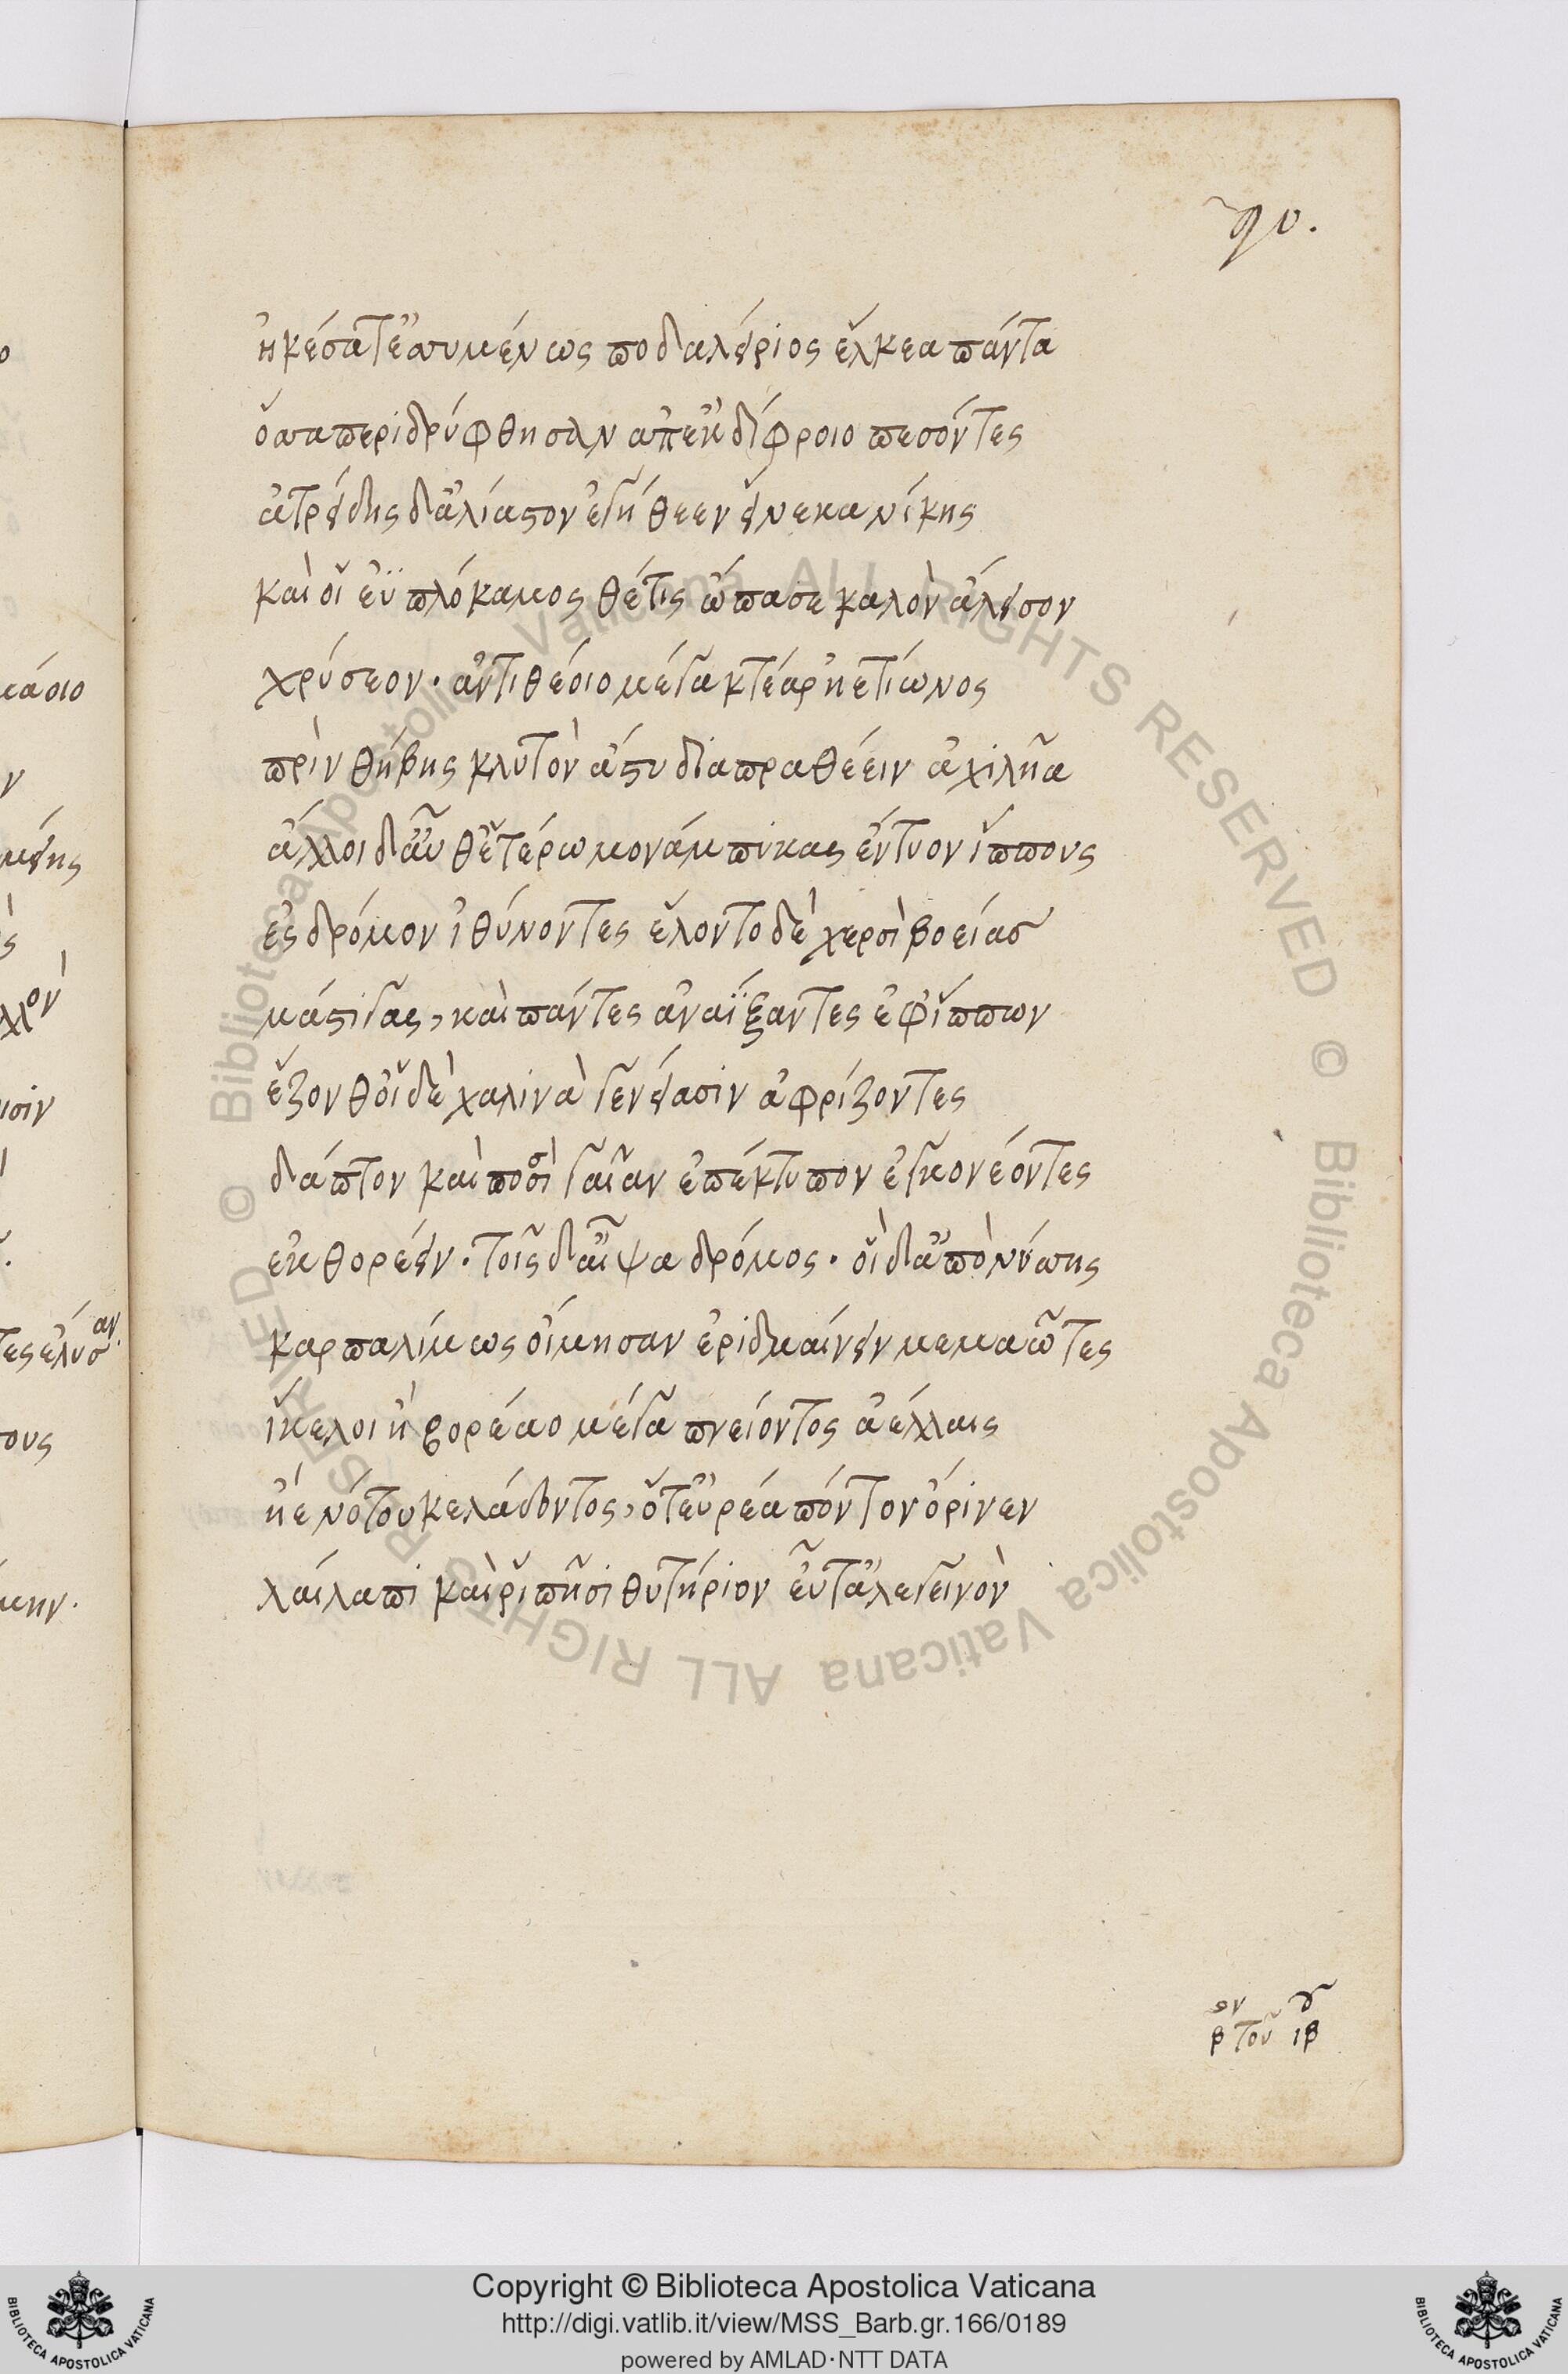 90.
ἠκέσατ' ἐσσυμένως ποδαλείριος ἕλκεα πάντα
ὅσσα περιδρύφθησαν ἀπ' ἐκ δίφροιο πεσόντες
ἀτρείδης δ' ἀλίαστον ἐγήθεεν εἵνεκα νίκης
καὶ οἵ ἐϋπλόκαμος θέτις ὤπασε καλὸν ἄλεισον
χρύσεον· ἀντιθέοιο μέγα κτέαρ ἠετίωνος
πρὶν θήβης κλυτὸν ἄστυ διαπραθέειν ἀχιλῆα
ἄλλοι δ' αὖθ' ἑτέρω μονάμπυκας ἔντυον ἵππους
ἐς δρόμον ἰθύνοντες ἕλοντο δὲ χερσὶ βοείασ
μάστιγας, καὶ πάντες ἀναΐξαντες ἐφ' ἵππων
ἕζονθ' οἵ δὲ χαλινὰ γενείασιν ἀφρίζοντες
δάπτον καὶ ποσσὶ γαῖαν ἐπέκτυπον ἐγκονέοντες
ἐκθορέειν· τοῖς δ' αἶψα δρόμος· οἱ δ' ἀπὸ νύσσης
καρπαλίμως οἴμησαν ἐριδμαίνειν μεμαῶτες
ἴκελοι ἢ βορέαο μέγα πνείοντος ἀέλλαις
ἠὲ νότου κελάδοντος, ὅτ' εὐρέα πόντον ὀρίνεν
λαίλαπι καὶ ῥιπῇσι θυτήριον εὖτ' ἀλεγεινὸν
β τοῦ ιβ
Copyright © Biblioteca Apostolica Vaticana
http://digi.vatlib.it/view/MSS_Barb.gr.166/0189
powered by AMLAD·NTT DATA